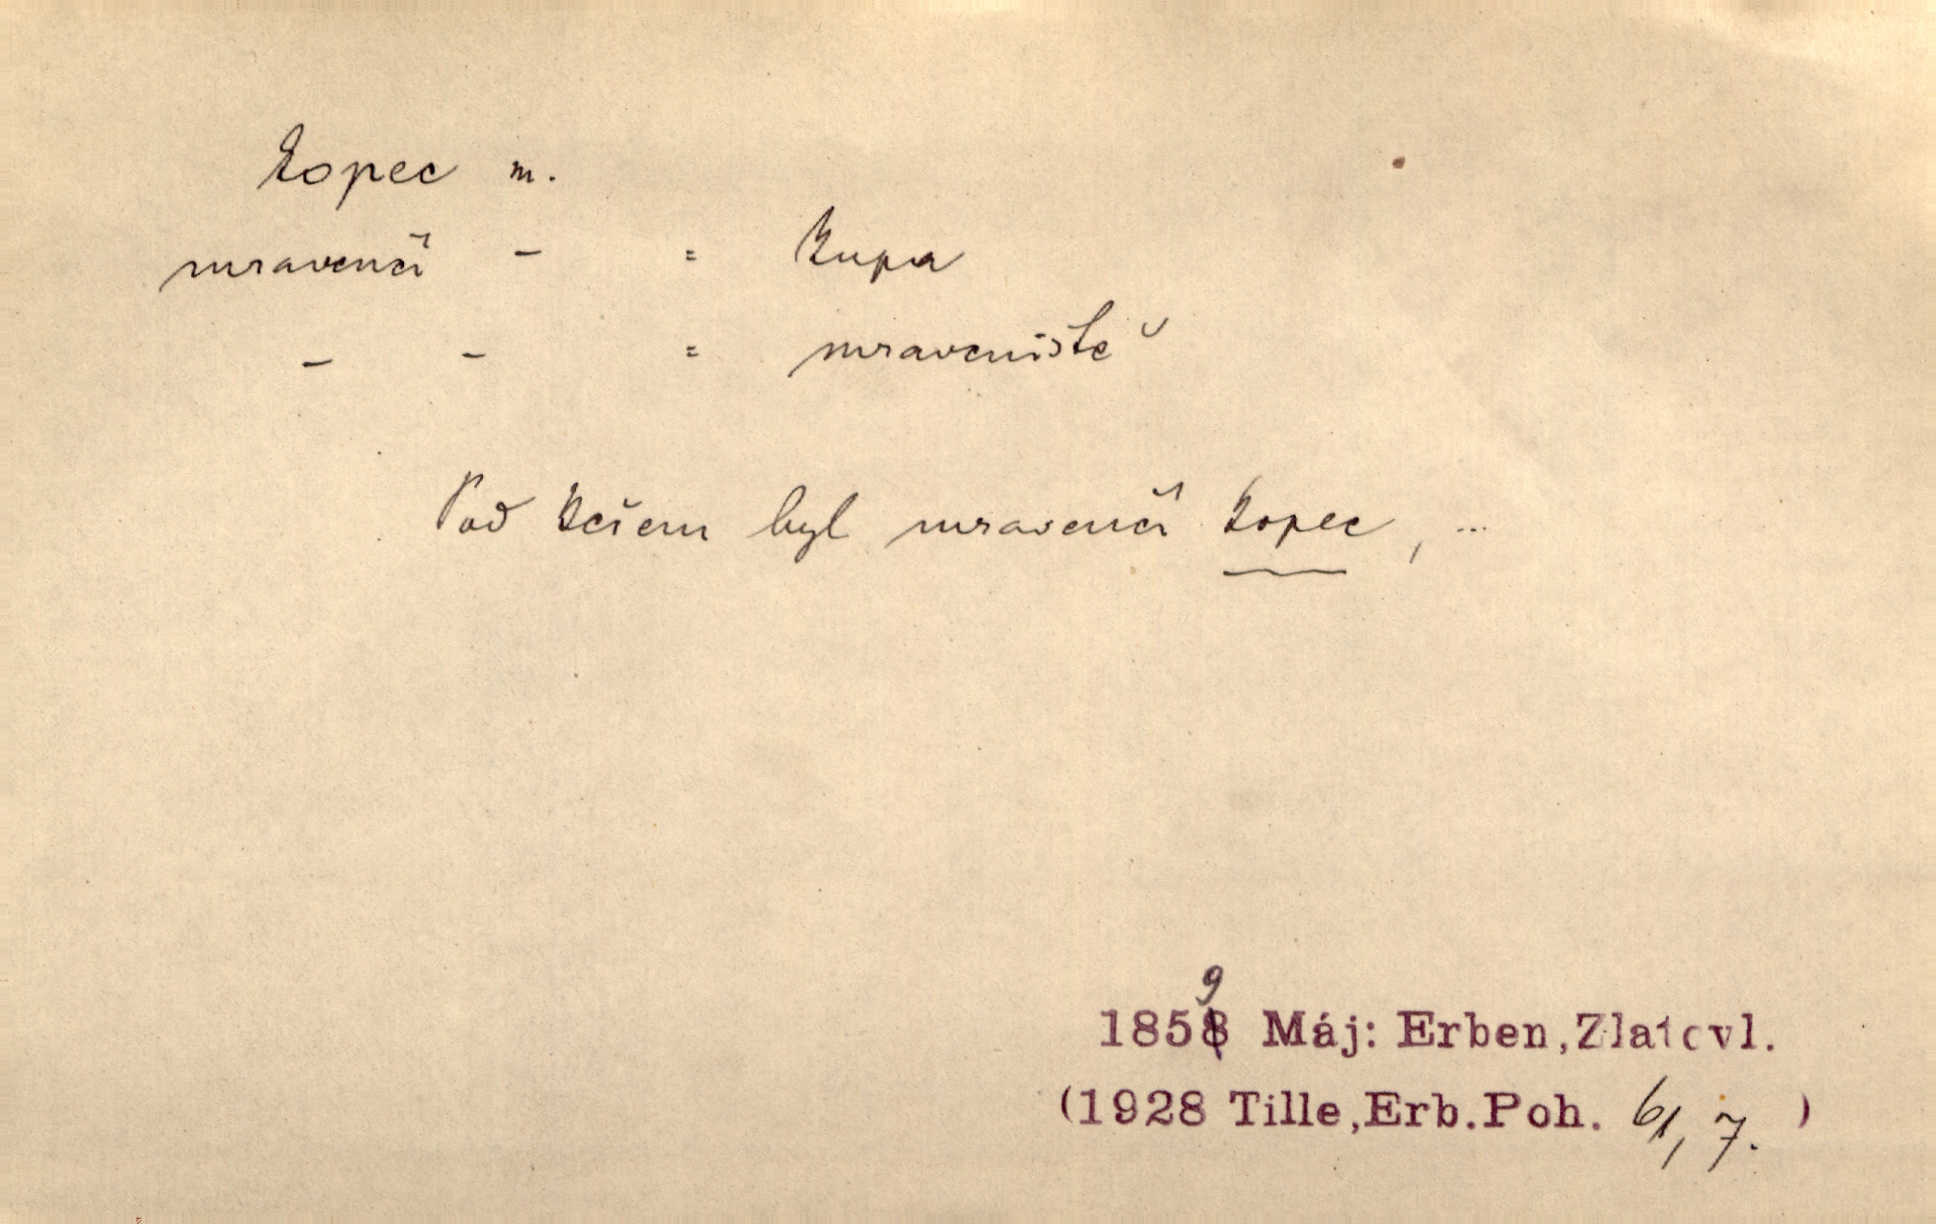 kopec m.
mravenčí - = kupa
- - = mraveniště
Pod keřem byl mravenčí kopec, ...
9
1858 Máj: Erben,Zlatovl.
(1928 Tille,Erb.Poh. 61, 7. )